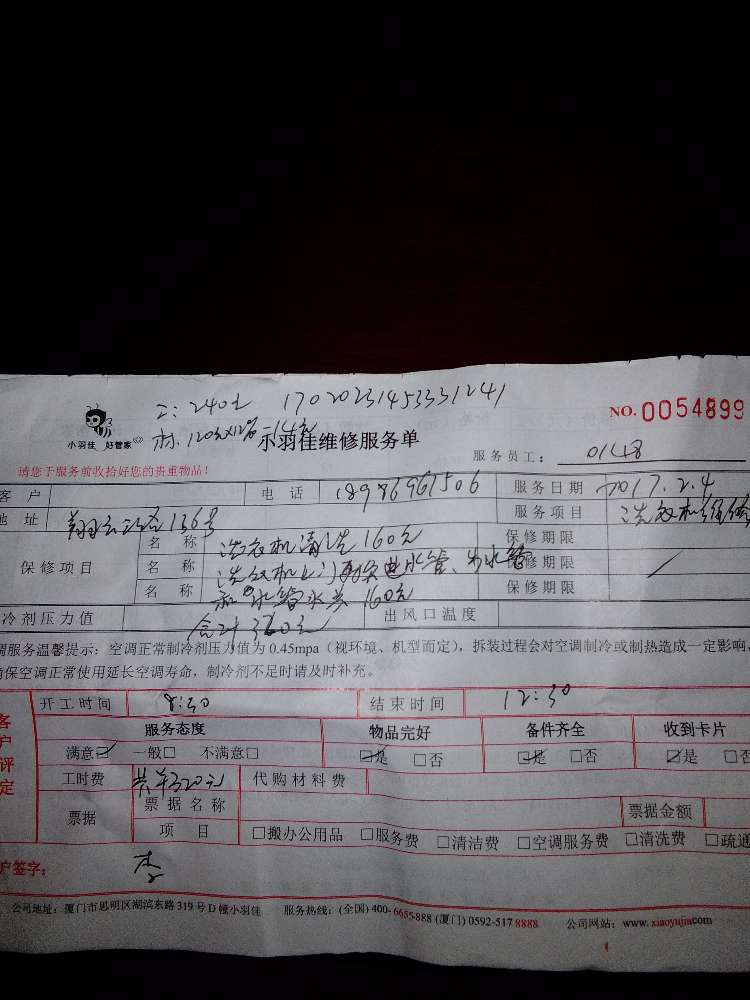 工: 240元 17020231453331241
NO. 0054899
小羽佳 好管家
材: 120元×12%=14元
小羽佳维修服务单
服务员工: 0148
请您于服务前收拾好您的贵重物品!
客 户 电 话 18976961506 服务日期 2017.2.4
地 址 136号 服务项目 洗衣机维修
保修项目
名 称 洗衣机清洗160元 保修期限
名 称 洗衣机 水管、 水管 保修期限
名 称 160元 保修期限
冷剂压力值 合计 元 出风口温度
调服务温馨提示: 空调正常制冷剂压力值为 0.45mpa (视环境、机型而定), 拆装过程会对空调制冷或制热造成一定影响。
确保空调正常使用延长空调寿命, 制冷剂不足时请及时补充。
客户评定
开工时间 8:30 结束时间 12:30
服务态度 物品完好 备件齐全 收到卡片
满意☑ 一般□ 不满意□ ☑是 □否 ☑是 □否 ☑是 □否
工时费 320元 代购材料费
票据 票据名称 票据金额
项 目 □搬办公用品 □服务费 □清洁费 □空调服务费 □清洗费 □疏通
户签字: 李
公司地址: 厦门市思明区湖滨东路 319 号 D 幢小羽佳 服务热线: (全国) 400-6655-888 (厦门) 0592-517 8888 公司网站: www.xiaoyujia.com